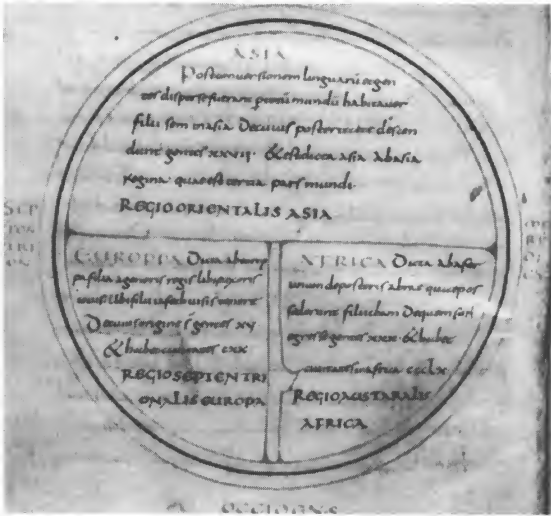 ASIA
Post conuersionem linguarū et gen
tes disperse fuerant per totū mundū habitauer
filii sem in asia De cuius posteritate descen
dunt gentes xxvii · & est dicta asia ab asia
regina quae est tertia pars mundi·
REGIO ORIENTALIS ASIA
SEP
TEN
TRI
ON
EUROPPA Dicta ab euro
pa filia agenoris regis libię uxoris
iouis Ubi filii iafeth uisi tenere
De cuius origine s̄ gentes xv
& habet ciuitates cxx
REGIO SEPTENTRI
ONALIS EUROPA
AFRICA Dicta ab afer
unum de posteris abrae qui
sederunt filii cham De quem sunt
egresse gentes xxx · & habet
ciuitates in africa ccclx
REGIO AUSTRALIS
AFRICA
OCCIDENS